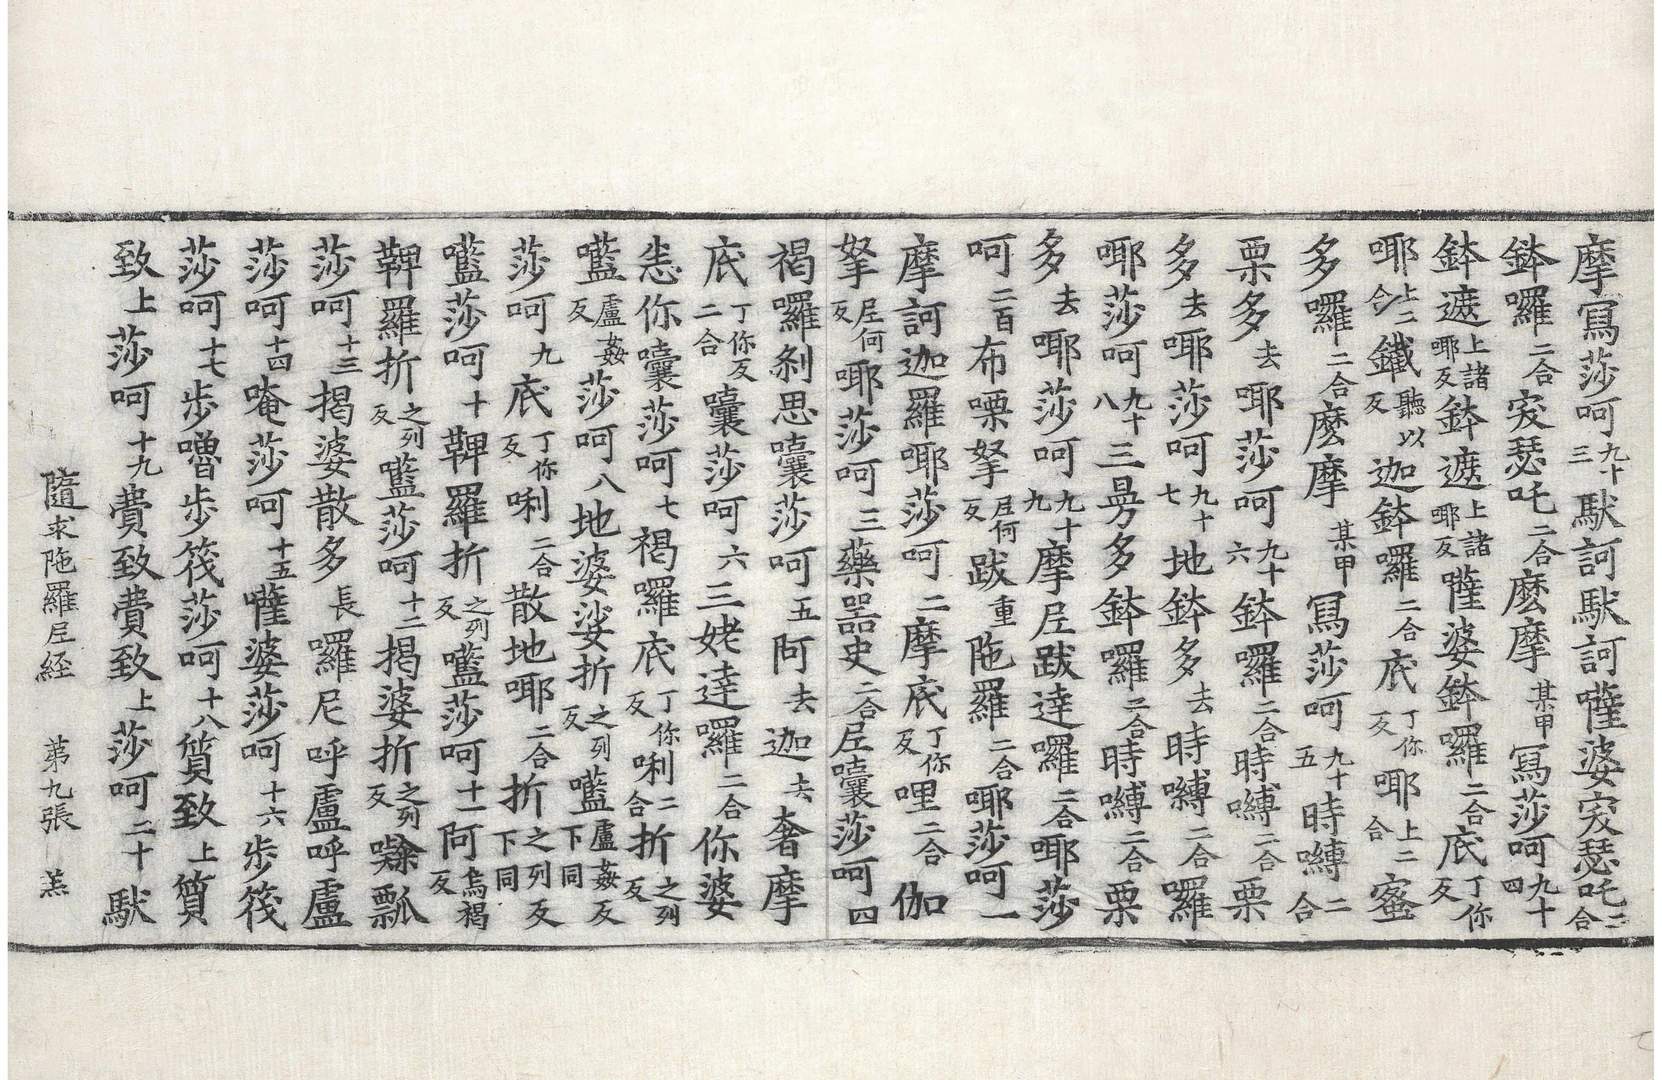 摩寫莎呵九十三馱訶馱訶薩婆突瑟吒二合
鉢囉二合突瑟吒二合麼摩某甲寫莎呵九十四
鉢遮上諸耶反鉢遮上諸耶反薩婆鉢囉二合底丁你反
耶上二合鐵聽以反迦鉢囉二合底丁你反耶上二合蜜
多囉二合麼摩某甲寫莎呵九十五時嚩二合
栗多去耶莎呵九十六鉢囉二合時嚩二合栗
多去耶莎呵九十七地鉢多去時嚩二合囉
耶莎呵九十八三曼多鉢囉二合時嚩二合栗
多去耶莎呵九十九摩尼跋達囉二合耶莎
呵二百布㗚拏尼何反跋重陁羅二合耶莎呵一
摩訶迦羅耶莎呵二摩底丁你反哩二合伽
拏尼何反耶莎呵三藥器史二合尼囊莎呵四
褐囉剎思囊莎呵五阿去迦去奢摩
底丁你反二合囊莎呵六三姥達囉二合你婆
恚你囊莎呵七褐囉底丁你反唎二合折之列反
𡃤盧姦反莎呵八地婆娑折之列反𡃤盧姦反下同
莎呵九底丁你反唎二合散地耶二合折之列反下同
𡃤莎呵十鞞羅折之列反𡃤莎呵十一阿烏褐反
鞞羅折之列反𡃤莎呵十二揭婆折之列反㘑瓢
莎呵十三揭婆散多長囉尼呼盧呼盧
莎呵十四唵莎呵十五薩婆莎呵十六步筏
莎呵十七步嚕步筏莎呵十八質致上質
致上莎呵十九費致費致上莎呵二十馱
隨求陁羅尼経　第九張　羔